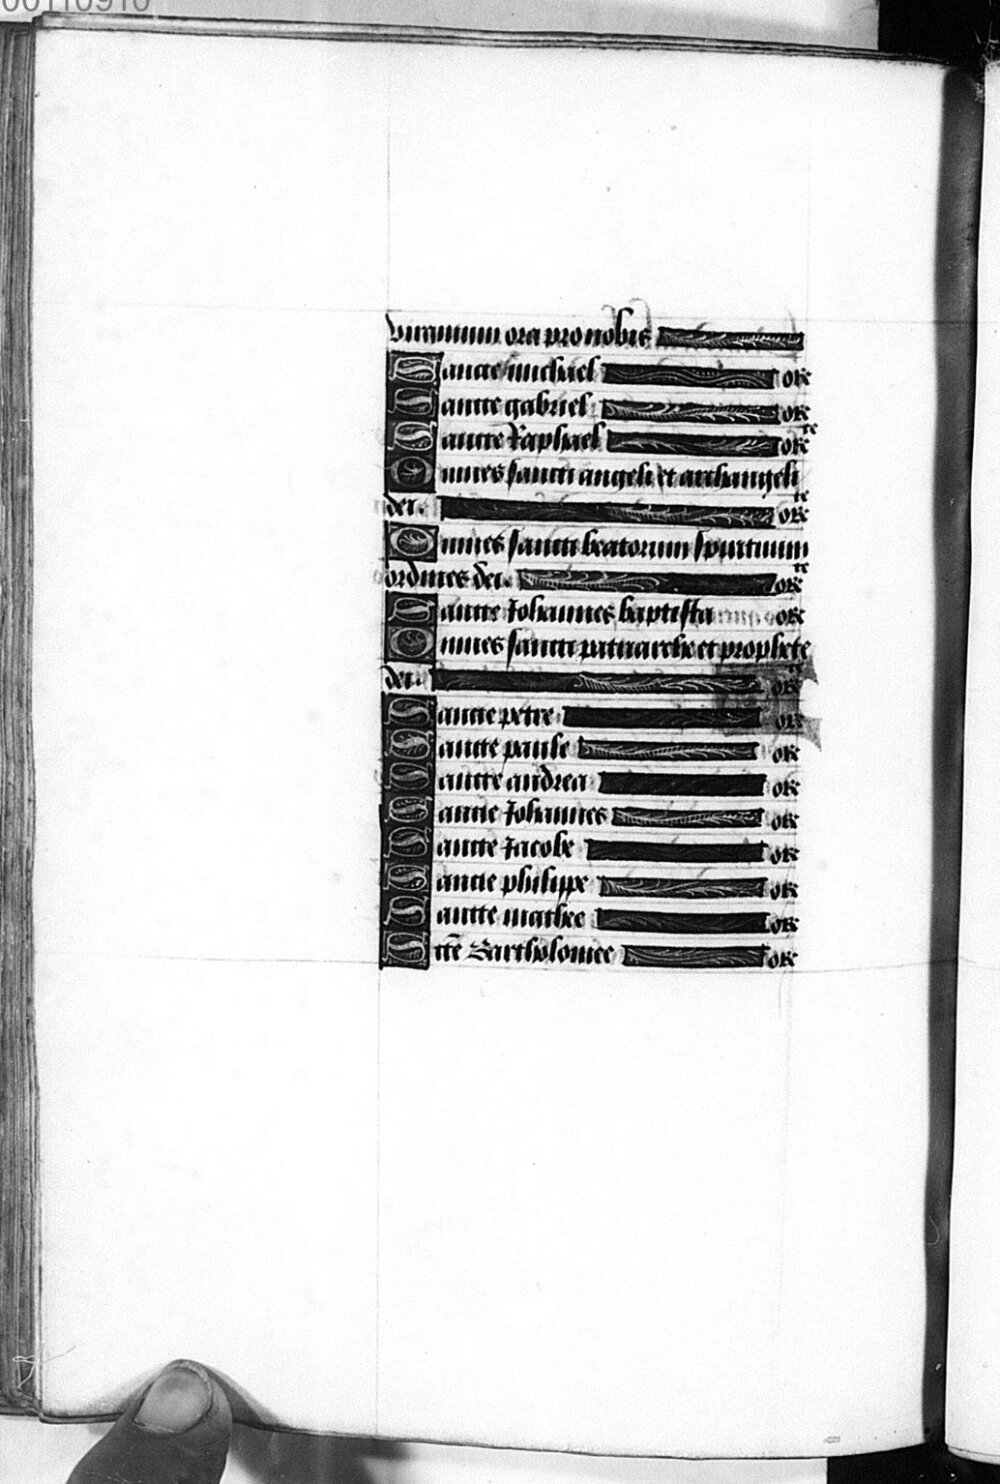 00110910
virginum ora pro nobis
Sancte michael or
Sancte gabriel or
Sancte Raphael or
Omnes sancti angeli et archangeli
dei. orte
Omnes sancti beatorum spirituum
ordines dei. orte
Sancte Johannes baptista or
Omnes sancti patriarche et prophete
dei. orte
Sancte petre or
Sancte paule or
Sancte andrea or
Sancte Johannes or
Sancte Jacobe or
Sancte philippe or
Sancte mathee or
Scte Bartholomee or